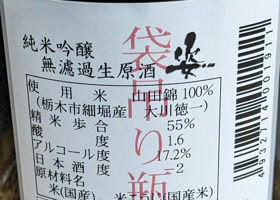 純米吟醸
無濾過生原酒
姿
袋吊り瓶
使用米 山田錦100%
(栃木市細堀産 大川徳一)
精米歩合 55%
酸度 1.6
アルコール度 17.2%
日本酒度 2
原材料名
米(国産)・米こうじ(国産米)
4932714001